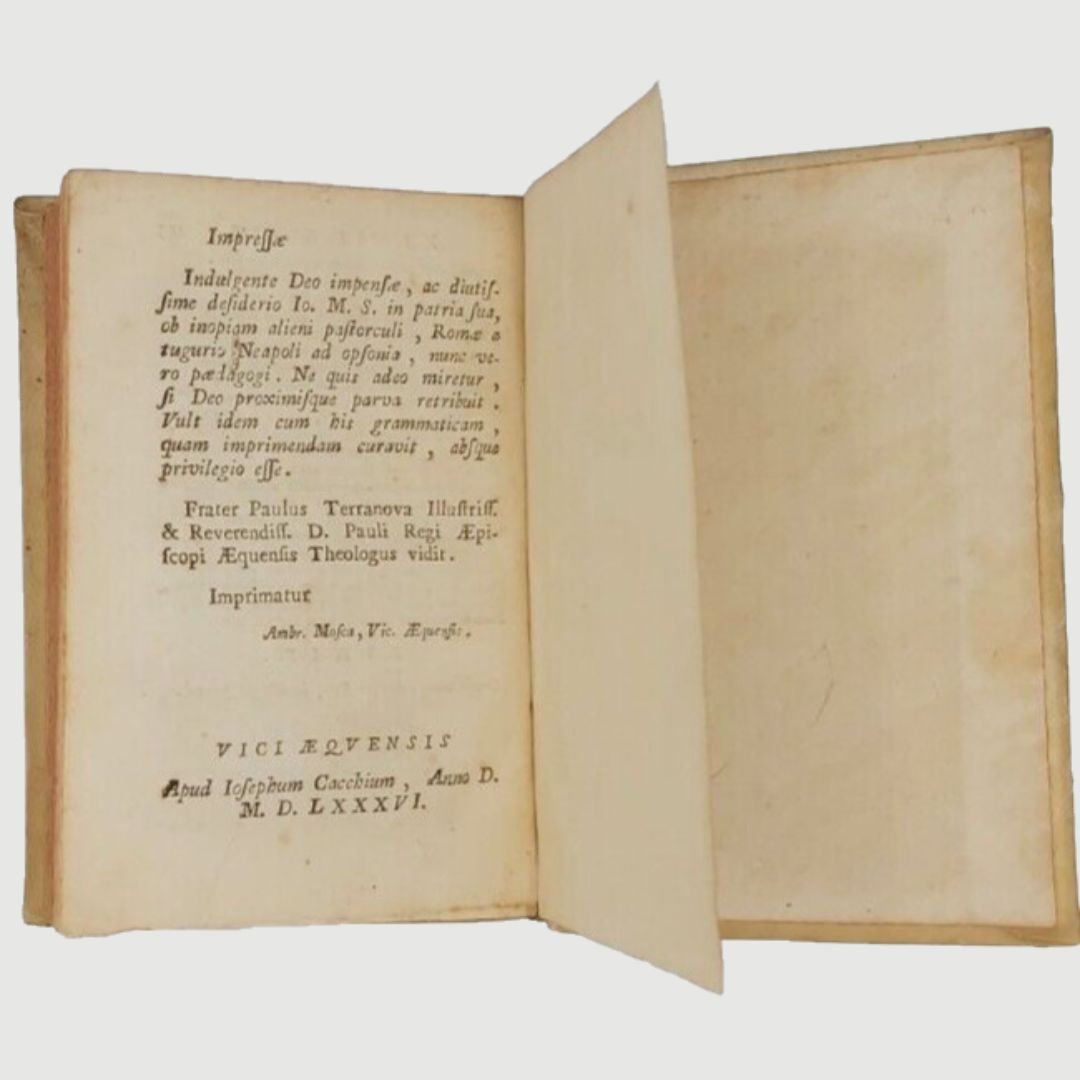 Impreſſæ
Indulgente Deo impenſæ, ac diutiſ-
ſime deſiderio Io. M. S. in patria ſua,
ob inopiam alieni paſtorculi, Romæ a
tugurio Neapoli ad opſonia, nunc ve-
ro pædagogi. Ne quis adeo miretur,
ſi Deo proximiſque parva retribuit.
Vult idem cum his grammaticam,
quam imprimendam curavit, abſque
privilegio eſſe.
Frater Paulus Terranova Illuſtriſſ.
& Reverendiſſ. D. Pauli Regi Æpi-
ſcopi Æquenſis Theologus vidit.
Imprimatur
Ambr. Moſca, Vic. Æquenſis.
VICI ÆQVENSIS
Apud Ioſephum Cacchium, Anno D.
M. D. LXXXVI.